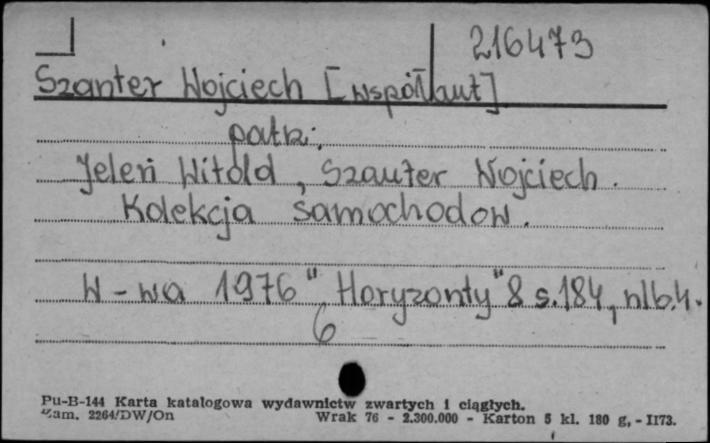 216473
Szanter Wojciech [współaut]
patrz:
Jeleń Witold, Szanter Wojciech.
Kolekcja samochodow.
W-wa 1976 "Horyzonty" 8 s.184, nlb.4.
6
Pu-B-144 Karta katalogowa wydawnictw zwartych i ciągłych.
Zam. 2264/DW/On Wrak 76 - 2.300.000 - Karton 5 kl. 180 g, - II73.